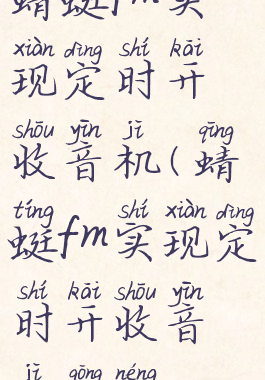 蜻蜓fm实
xiàn dìng shí kāi
现定时开
shōu yīn jī qīng
收音机(蜻
tíng shí xiàn dìng
蜓fm实现定
shí kāi shōu yīn
时开收音
jī gōng néng